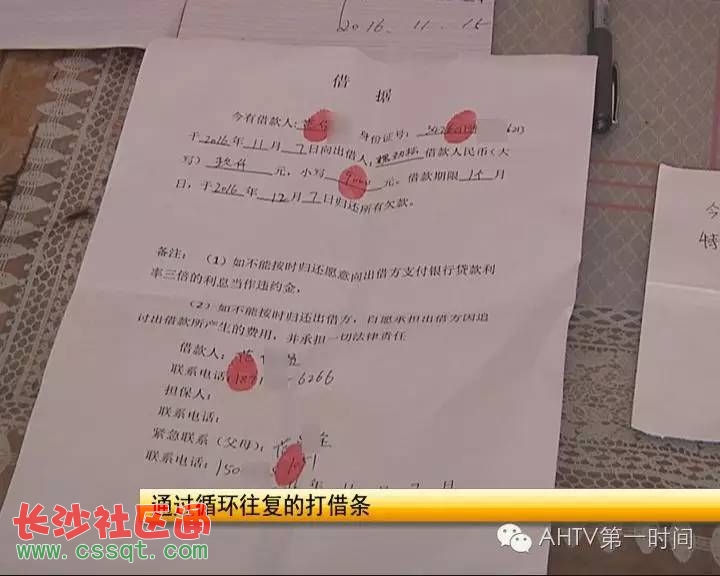 2016. 11. 15
借 据
今有借款人: 身份证号: 6213
于2016年11月7日向出借人, 借款人民币(大
写) 元, 小写9000元。借款期限1个月
日, 于2016年12月7日归还所有欠款。
备注: (1) 如不能按时归还愿意向出借方支付银行贷款利
率三倍的利息当作违约金,
(2) 如不能按时归还出借方, 自愿承担出借方因追
讨出借款所产生的费用, 并承担一切法律责任
借款人:
联系电话: 187 6266
担保人:
联系电话:
紧急联系(父母):
联系电话: 150
年 11月 7日
今
特
通过循环往复的打借条
长沙社区通
www.cssqt.com
AHTV第一时间